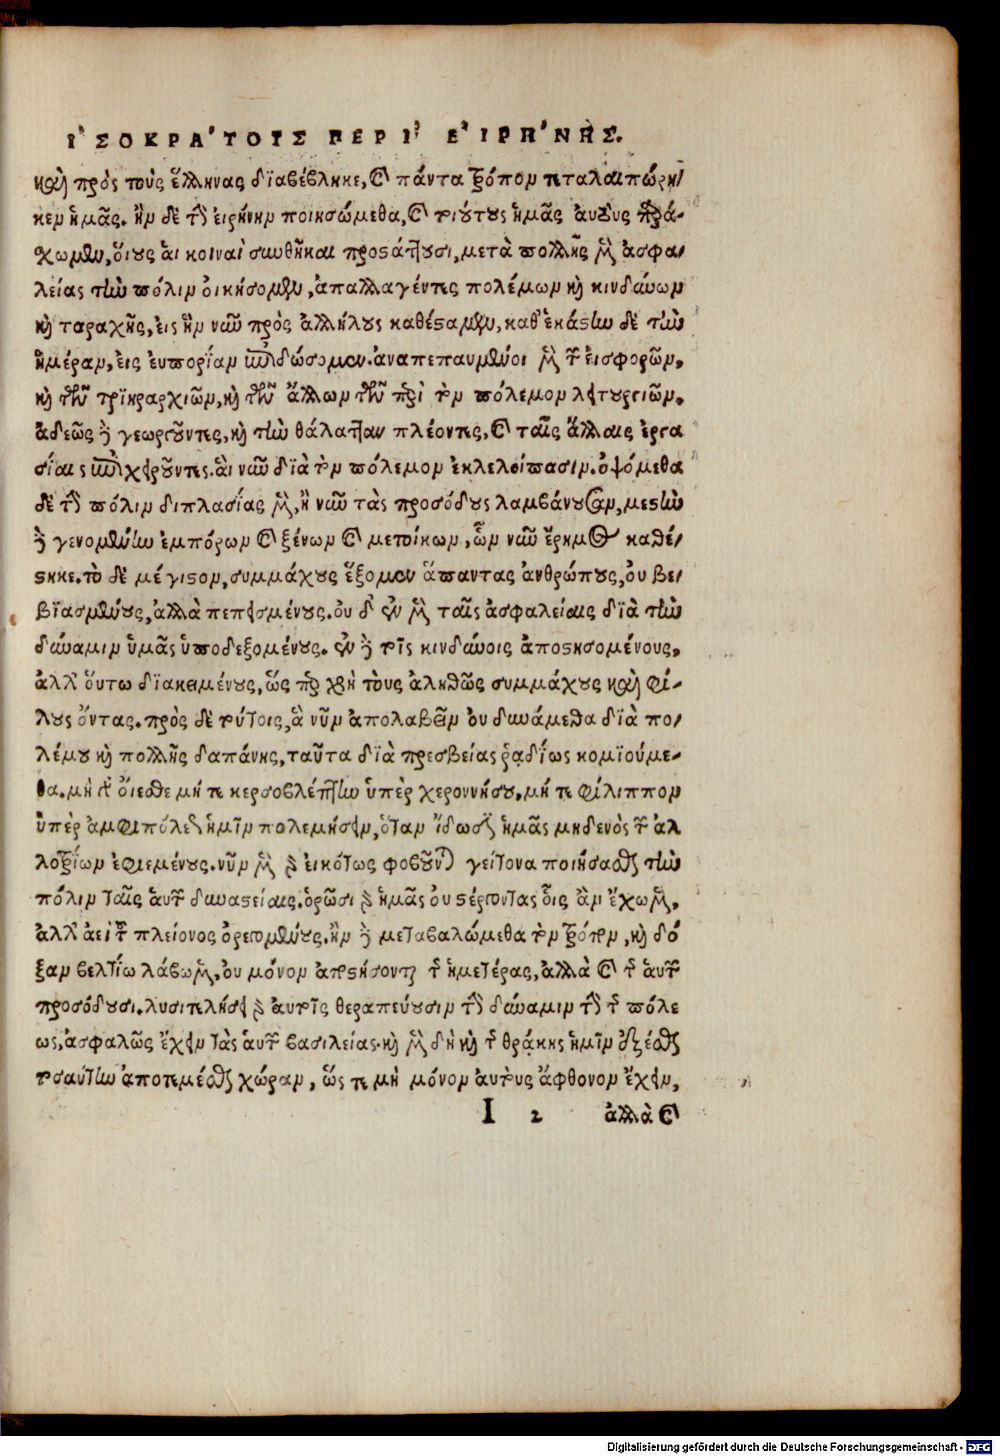 ΙʼΣΟΚΡΑʼΤΟΥΣ ΠΕΡΙʼ ΕʼΙΡΗʼΝΗΣ.
καὶ πρὸς τοὺς ἕλληνας διαβέβληκε, καὶ πάντα τρόπον τεταλαιπώρη/
κεν ἡμᾶς. ἢν δὲ τὴν εἰρήνην ποιησώμεθα, καὶ τοιούτους ἡμᾶς αὐτοὺς παρά-
χωμεν, ὅιους ἁι κοιναὶ συνθῆκαι προστάττουσι, μετὰ πολλῆς μὲν ἀσφα/
λείας τὴν πόλιν ὀικήσομεν, ἀπαλλαγέντες πολέμων καὶ κινδύνων
καὶ ταραχῆς, εἰς ἣν νῦν πρὸς ἀλλήλους καθέσταμεν, καθ' ἑκάστην δὲ τὴν
ἡμέραν, εἰς ἐυπορίαν ἐπιδώσομεν. ἀναπεπαυμένοι μὲν τῶν ἐισφορῶν,
καὶ τῶν τριηραρχιῶν, καὶ τῶν ἄλλων τῶν περὶ τὸν πόλεμον λειτουργιῶν.
ἀδεῶς δὲ γεωργοῦντες, καὶ τὴν θάλατταν πλέοντες, καὶ ταῖς ἄλλαις ἐργα
σίαις ἐπιχειροῦντες. ἁι νῦν διὰ τὸν πόλεμον ἐκλελοίπασιν. ὀψόμεθα
δὲ τὴν πόλιν διπλασίας μὲν, ἢ νῦν τὰς προσόδους λαμβάνουσαν, μεστὴν
δὲ γενομένην ἐμπόρων καὶ ξένων καὶ μετοίκων, ὧν νῦν ἔρημος καθέ/
στηκε. τὸ δὲ μέγιστον, συμμάχους ἕξομεν ἅπαντας ἀνθρώπους, ὀυ βε/
βιασμένους, ἀλλὰ πεπεισμένους. ὀυ δ' ἐν μὲν ταῖς ἀσφαλείαις διὰ τὴν
δύναμιν ὑμᾶς ὑποδεξομένους. ἐν δὲ τοῖς κινδύνοις ἀποστησομένους,
ἀλλ' ὅυτω διακειμένους, ὥς περ χρὴ τοὺς ἀληθῶς συμμάχους καὶ φί-
λους ὄντας. πρὸς δὲ τούτοις, ἃ νῦν ἀπολαβεῖν ὀυ δυνάμεθα διὰ πο/
λέμου καὶ πολλῆς δαπάνης, ταῦτα διὰ πρεσβείας ῥᾳδίως κομιούμε-
θα. μὴ γὰρ ὄιεσθε μή τε κερσοβλέπτην ὑπὲρ χερονήσου, μή τε φίλιππον
ὑπὲρ ἀμφιπόλεως ἡμῖν πολεμήσειν, ὅταν ἴδωσιν ἡμᾶς μηδενὸς τῶν ἀλ
λοτρίων ἐφιεμένους. νῦν μὲν γὰρ εἰκότως φοβοῦνται γείτονα ποιήσασθαι τὴν
πόλιν ταῖς ἁυτῶν δυναστείαις. ὁρῶσι γὰρ ἡμᾶς ὀυ στέργοντας ὅις ἂν ἔχωμεν,
ἀλλ' ἀεὶ τοῦ πλείονος ὀρεγομένους. ἢν δὲ μεταβαλώμεθα τὸν τρόπον, καὶ δό
ξαν βελτίω λάβωμεν, ὀυ μόνον ἀποστήσονται τῆς ἡμετέρας, ἀλλὰ καὶ τῆς ἁυτῶν
προσδώσουσι. λυσιτελήσει γὰρ ἀυτοῖς θεραπεύουσιν τὴν δύναμιν τὴν τῆς πόλε
ως, ἀσφαλῶς ἔχειν τὰς ἁυτῶν βασιλείας. καὶ μὲν δὴ καὶ τῆς θράκης ἡμῖν ἐξέσται
τοσαύτην ἀποτεμέσθαι χώραν, ὥς τε μὴ μόνον ἀυτοὺς ἄφθονον ἔχειν,
I 2 ἀλλὰ καὶ
Digitalisierung gefördert durch die Deutsche Forschungsgemeinschaft - DFG